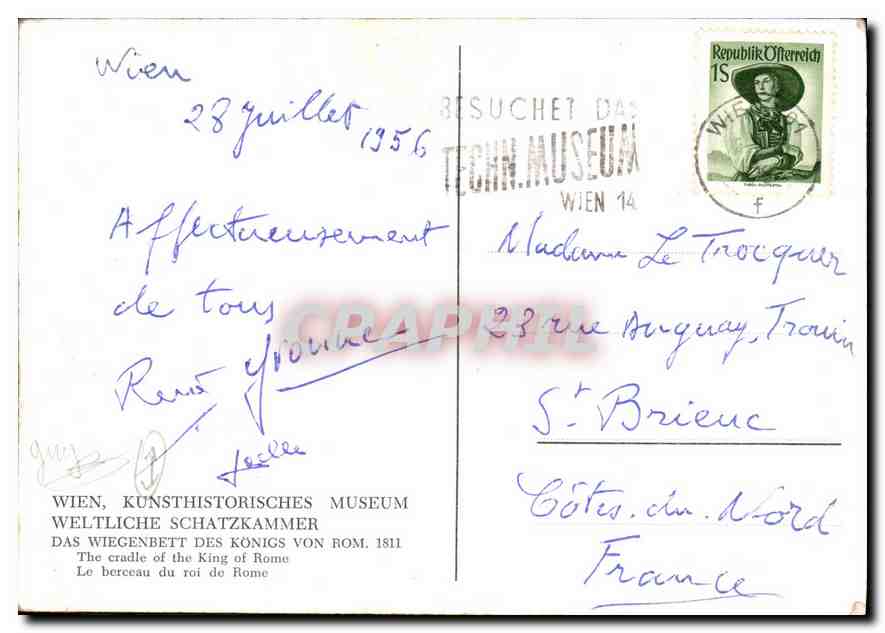 Wien
28 Juillet 1956
Affectueusement
de tous
René Yvonne
Joelle
guy
WIEN, KUNSTHISTORISCHES MUSEUM
WELTLICHE SCHATZKAMMER
DAS WIEGENBETT DES KÖNIGS VON ROM. 1811
The cradle of the King of Rome
Le berceau du roi de Rome
BESUCHET DAS
TECHN. MUSEUM
WIEN 14
Republik Österreich
1S
WIEN
f
Madame Le Trocquer
23 rue Duguay, Trouin
St Brieuc
Côtes. du. Nord
France
CPAPHIL